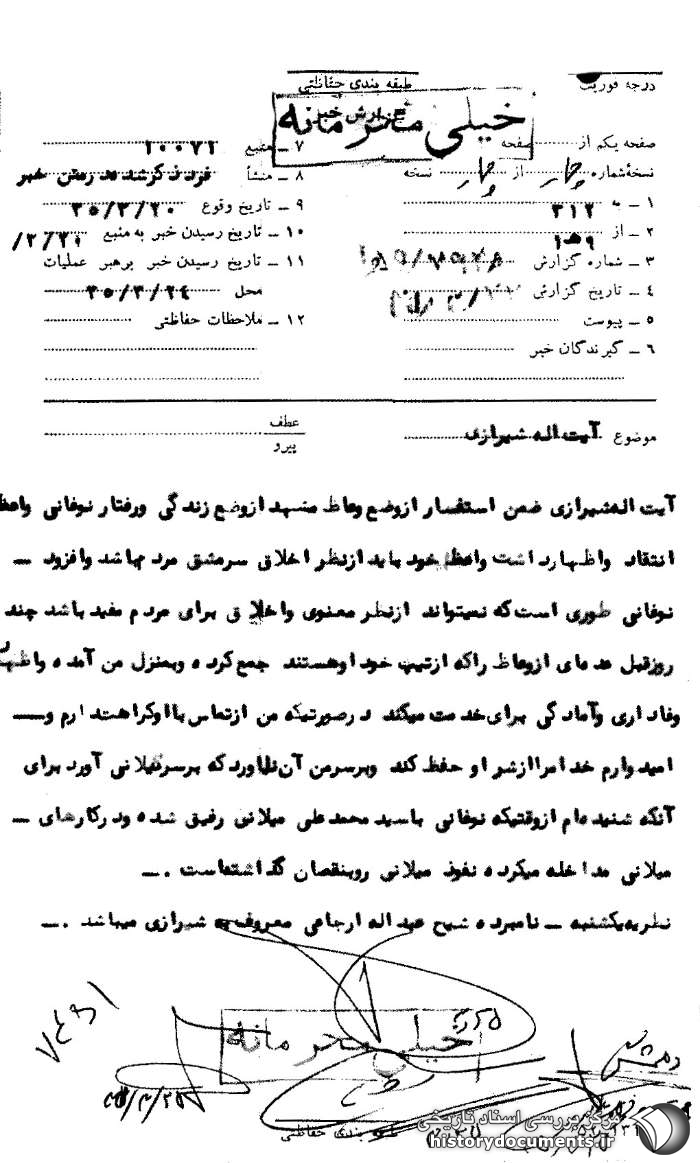 درجه فوریت
طبقه بندی حفاظتی
گزارش خبر
خیلی محرمانه
صفحه یکم از صفحه
نسخه شماره چهار از چهار نسخه
۱ ـ به ۳۱۲
۲ ـ از ۹ه۱
۳ ـ شماره گزارش
۴ ـ تاریخ گزارش
۵ ـ پیوست
۶ ـ گیرندگان خبر
۷ ـ منبع ۱۰۰۷۲
۸ ـ منشأ فرد ذکرشده در متن خبر
۹ ـ تاریخ وقوع ۳۵/۳/۲۰
۱۰ ـ تاریخ رسیدن خبر به منبع
۱۱ ـ تاریخ رسیدن خبر برهبر عملیات
محل ۳۵/۳/۲۴
۱۲ ـ ملاحظات حفاظتی
موضوع آیت اله شیرازی
عطف
پیرو
آیت اله شیرازی ضمن استفسار از وضع وعاظ مشهد از وضع زندگی و رفتار نوغانی واعظ
انتقاد و اظهار داشت واعظ خود باید از نظر اخلاق سرمشق مردم باشد و افزود ـ
نوغانی طوری است که نمیتواند از نظر معنوی و اخلاق برای مردم مفید باشد چند
روز قبل عده ای از وعاظ را که از تیپ خود او هستند جمع کرده و بمنزل من آمده و اظهار
وفاداری و آمادگی برای خدمت میکند در صورتیکه من از تماس با او کراهت دارم و ـ
امیدوارم خدا مرا از شر او حفظ کند و بر سر من آن نیاورد که بر سر میلانی آورد برای
آنکه شنیده ام از وقتیکه نوغانی با سید محمدعلی میلانی رفیق شده و در کارهای ـ
میلانی مداخله میکرده نفوذ میلانی رو بنقصان گذاشته است .ـ
نظریه یکشنبه ـ نامبرده شیخ عبداله ارجاعی معروف به شیرازی میباشد .ـ
خیلی محرمانه
طبقه بندی حفاظتی
مرکز بررسی اسناد تاریخی
historydocuments.ir